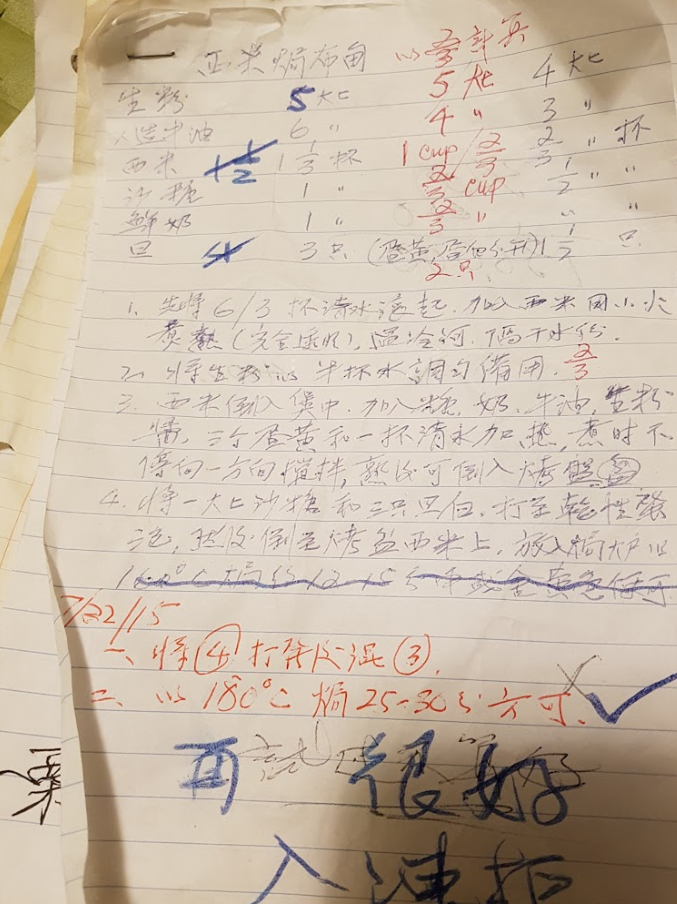 西米焗布甸 以2/3計算
生粉 5大匕 5大匕 4大匕
人造牛油 6〃 4〃 3〃
西米 1 1/2 1 1/3杯 1 cup/2/3 2/3〃杯
沙糖 1〃 2/3 cup 1/2〃〃
鮮奶 1〃 2/3〃 〃 〃
旦 4 3只(蛋黃,蛋白分開) 1 1/2只
2只
1. 先將6/3杯清水滾起.加入西米用小火
煮熟(完全透明),過冷河.隔干水份.
2. 將生粉以半杯水調勻備用. 2/3
3. 西米倒入煲中.加入糖,奶,牛油,生粉
漿,三个蛋黃和一杯清水加熱,煮时不
停向一方向攪拌,熟後可倒入烤盤
4. 將一大匕沙糖和三只旦白.打至乾性發
泡,然後倒至烤盆西米上,放入焗炉以
160°C焗約12-15分
7/22/15
一、將④打發後混③.
二、以180°C焗25-30分方可.
再試 很好
入